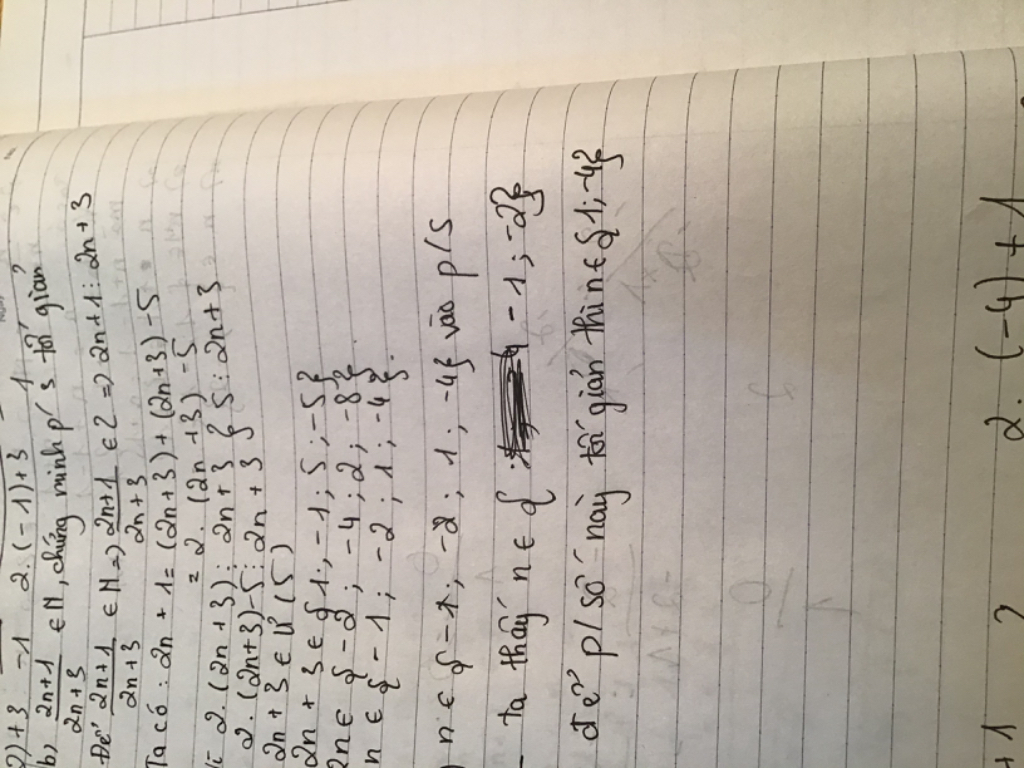 2)+3 -1 2.(-1)+3 1
b) 2n+1 / 2n+3 ∈ N, chứng minh p/s tối giản
Để 2n+1 / 2n+3 ∈ N => 2n+1 / 2n+3 ∈ Z => 2n+1 : 2n+3
Ta có : 2n + 1 = (2n+3) + (2n+3) - 5
= 2. (2n +3) - 5
Vì 2. (2n+3) : 2n+3 } 5 : 2n+3
2. (2n+3)-5 : 2n+3
2n+3 ∈ Ư (5)
2n + 3 ∈ { 1 ; -1 ; 5 ; -5 }
2n ∈ { -2 ; -4 ; 2 ; -8 }
n ∈ { -1 ; -2 ; 1 ; -4 } .
n ∈ { -1 ; -2 ; 1 ; -4 } vào p/s
- ta thấy n ∈ { -1 ; -2 }
để p/số này tối giản thì n ∈ { 1; -4 }
+1 2 2. (-4) + 1